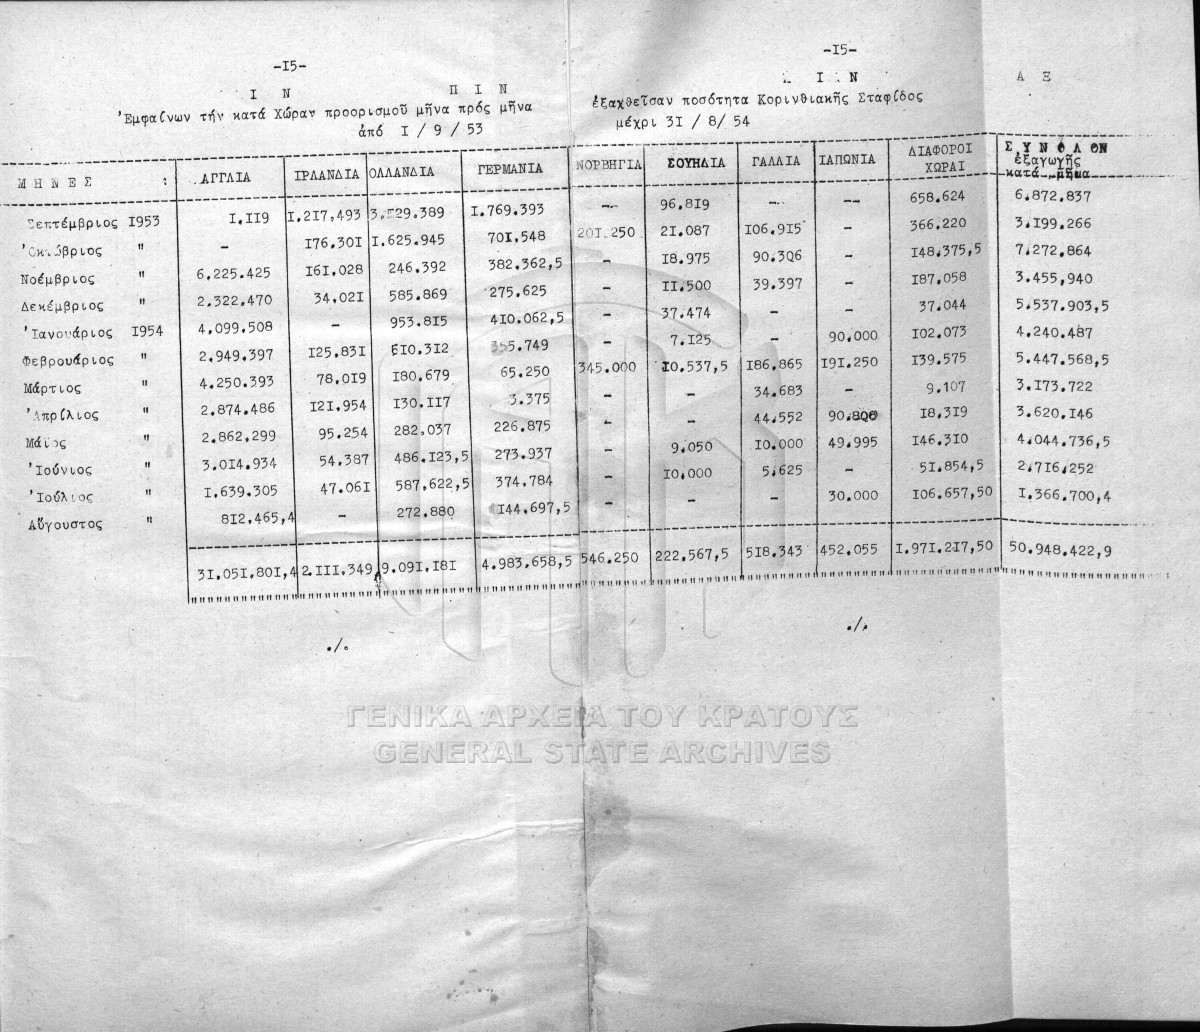 -15-
-15-
Ι Ν Π Ι Ν
Ι Ν Α Ξ
Ἐμφαίνων τήν κατά Χώραν προορισμοῦ μῆνα πρός μῆνα ἐξαχθεῖσαν ποσότητα Κορινθιακῆς Σταφίδος
ἀπό 1 / 9 / 53 μέχρι 31 / 8/ 54
ΜΗΝΕΣ : ΑΓΓΛΙΑ ΙΡΛΑΝΔΙΑ ΟΛΛΑΝΔΙΑ ΓΕΡΜΑΝΙΑ ΝΟΡΒΗΓΙΑ ΣΟΥΗΔΙΑ ΓΑΛΛΙΑ ΙΑΠΩΝΙΑ ΔΙΑΦΟΡΟΙ ΧΩΡΑΙ ΣΥΝΟΛΟΝ ἐξαγωγῆς κατά μῆνα
Σεπτέμβριος 1953 1.119 1.217,493 1.769.393 -- 96.819 - -- 658.624 6.872.837
Ὀκτώβριος " - 176.301 1.625.945 701,548 201.250 21.087 106.915 - 366.220 3.199.266
Νοέμβριος " 6.225.425 161,028 246.392 382.362,5 - 18.975 90.306 - 148.375,5 7.272.864
Δεκέμβριος " 2.322.470 34.021 585.869 275.625 - 11.500 39.397 - 187.058 3.455,940
Ἰανουάριος 1954 4.099.508 - 953.815 410.062,5 - 37.474 - - 37.044 5.537.903,5
Φεβρουάριος " 2.949.397 125.831 610.312 355.749 - 7.125 - 90.000 102.073 4.240.487
Μάρτιος " 4.250.393 78.019 180.679 65.250 345.000 10.537,5 186.865 191.250 139.575 5.447.568,5
Ἀπρίλιος " 2.874.486 121.954 130.117 3.375 - - 34.683 - 9.107 3.173.722
Μάϊος " 2.862.299 95.254 282.037 226.875 - - 44.552 90.800 18.319 3.620.146
Ἰούνιος " 3.014.934 54.387 486.123,5 273.937 - 9.050 10.000 49.995 146.310 4.044.736,5
Ἰούλιος " 1.639.305 47.061 587,622,5 374.784 - 10,000 5.625 - 51.854,5 2.716.252
Αὔγουστος " 812.465,4 - 272.880 144.697,5 - - - 30.000 106.657,50 1.366.700,4
31.051.801,4 2.111.349 9.091.181 4.983.658,5 546.250 222.567,5 518.343 452.055 1.971.217,50 50.948.422,9
./.
./.
ΓΕΝΙΚΑ ΑΡΧΕΙΑ ΤΟΥ ΚΡΑΤΟΥΣ
GENERAL STATE ARCHIVES